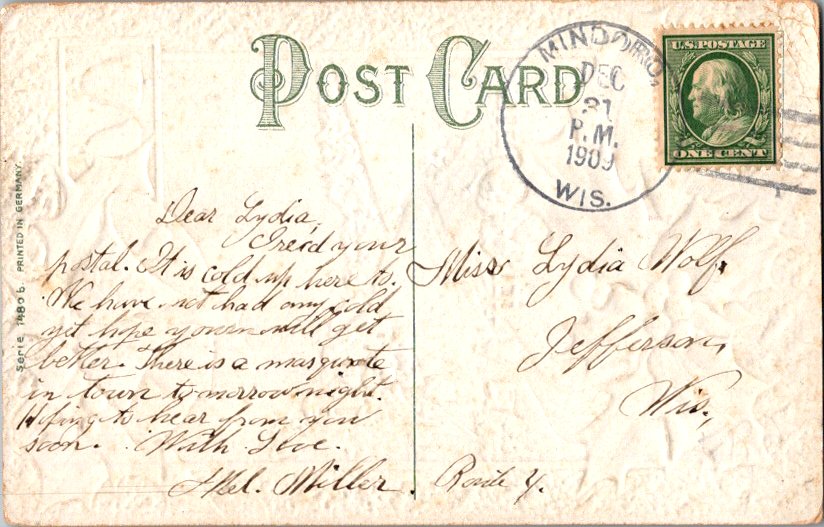 POST CARD
MINDORO,
DEC
31
P.M.
1909
WIS.
U.S. POSTAGE
ONE CENT
Serie 1480 b. PRINTED IN GERMANY
Dear Lydia,
I rec'd your
postal. It is cold up here to.
We have not had any cold
yet hope you will get
better. There is a masqurate
in town to morrow night.
Hoping to hear from you
soon. With Love.
Miller.
Miss Lydia Wolf,
Jefferson,
Wis.,
Route 4.